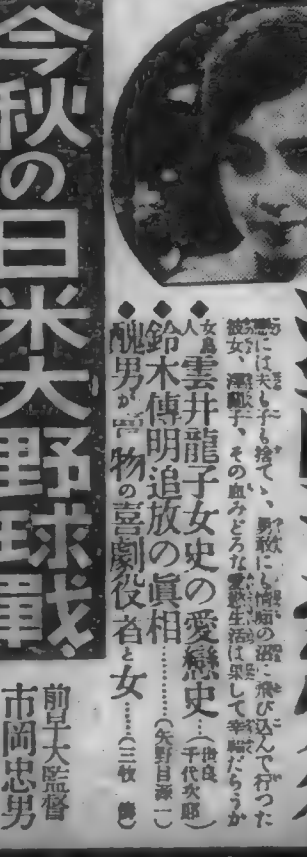 戀には夫も子も捨てゝ、勇敢にも情痴の沼に飛び込んで行つた
彼女、澤蘭子、その血みどろな愛慾生活は果して幸福だらうか
◆女鳥人 雲井龍子女史の愛戀史…（世良千代次郎）
◆鈴木傳明追放の眞相…………（矢野目源一）
◆醜男が賣物の喜劇役者と女……（三牧）
今秋の日米大野球戰
前早大監督
市岡忠男